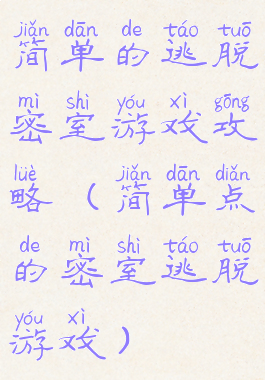 jiǎn dān de táo tuō
简单的逃脱
mì shì yóu xì gōng
密室游戏攻
lüè jiǎn dān diǎn
略（简单点
de mì shì táo tuō
的密室逃脱
yóu xì
游戏）